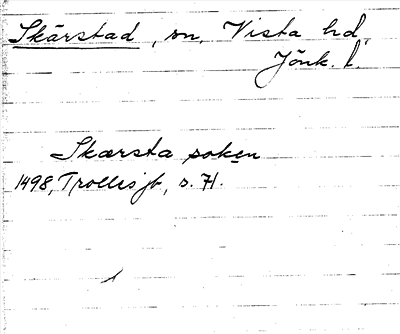 Skärstad, sn, Vista hd,
Jönk. l.
Skærsta soken
1498, Trollesjb, s. 71.